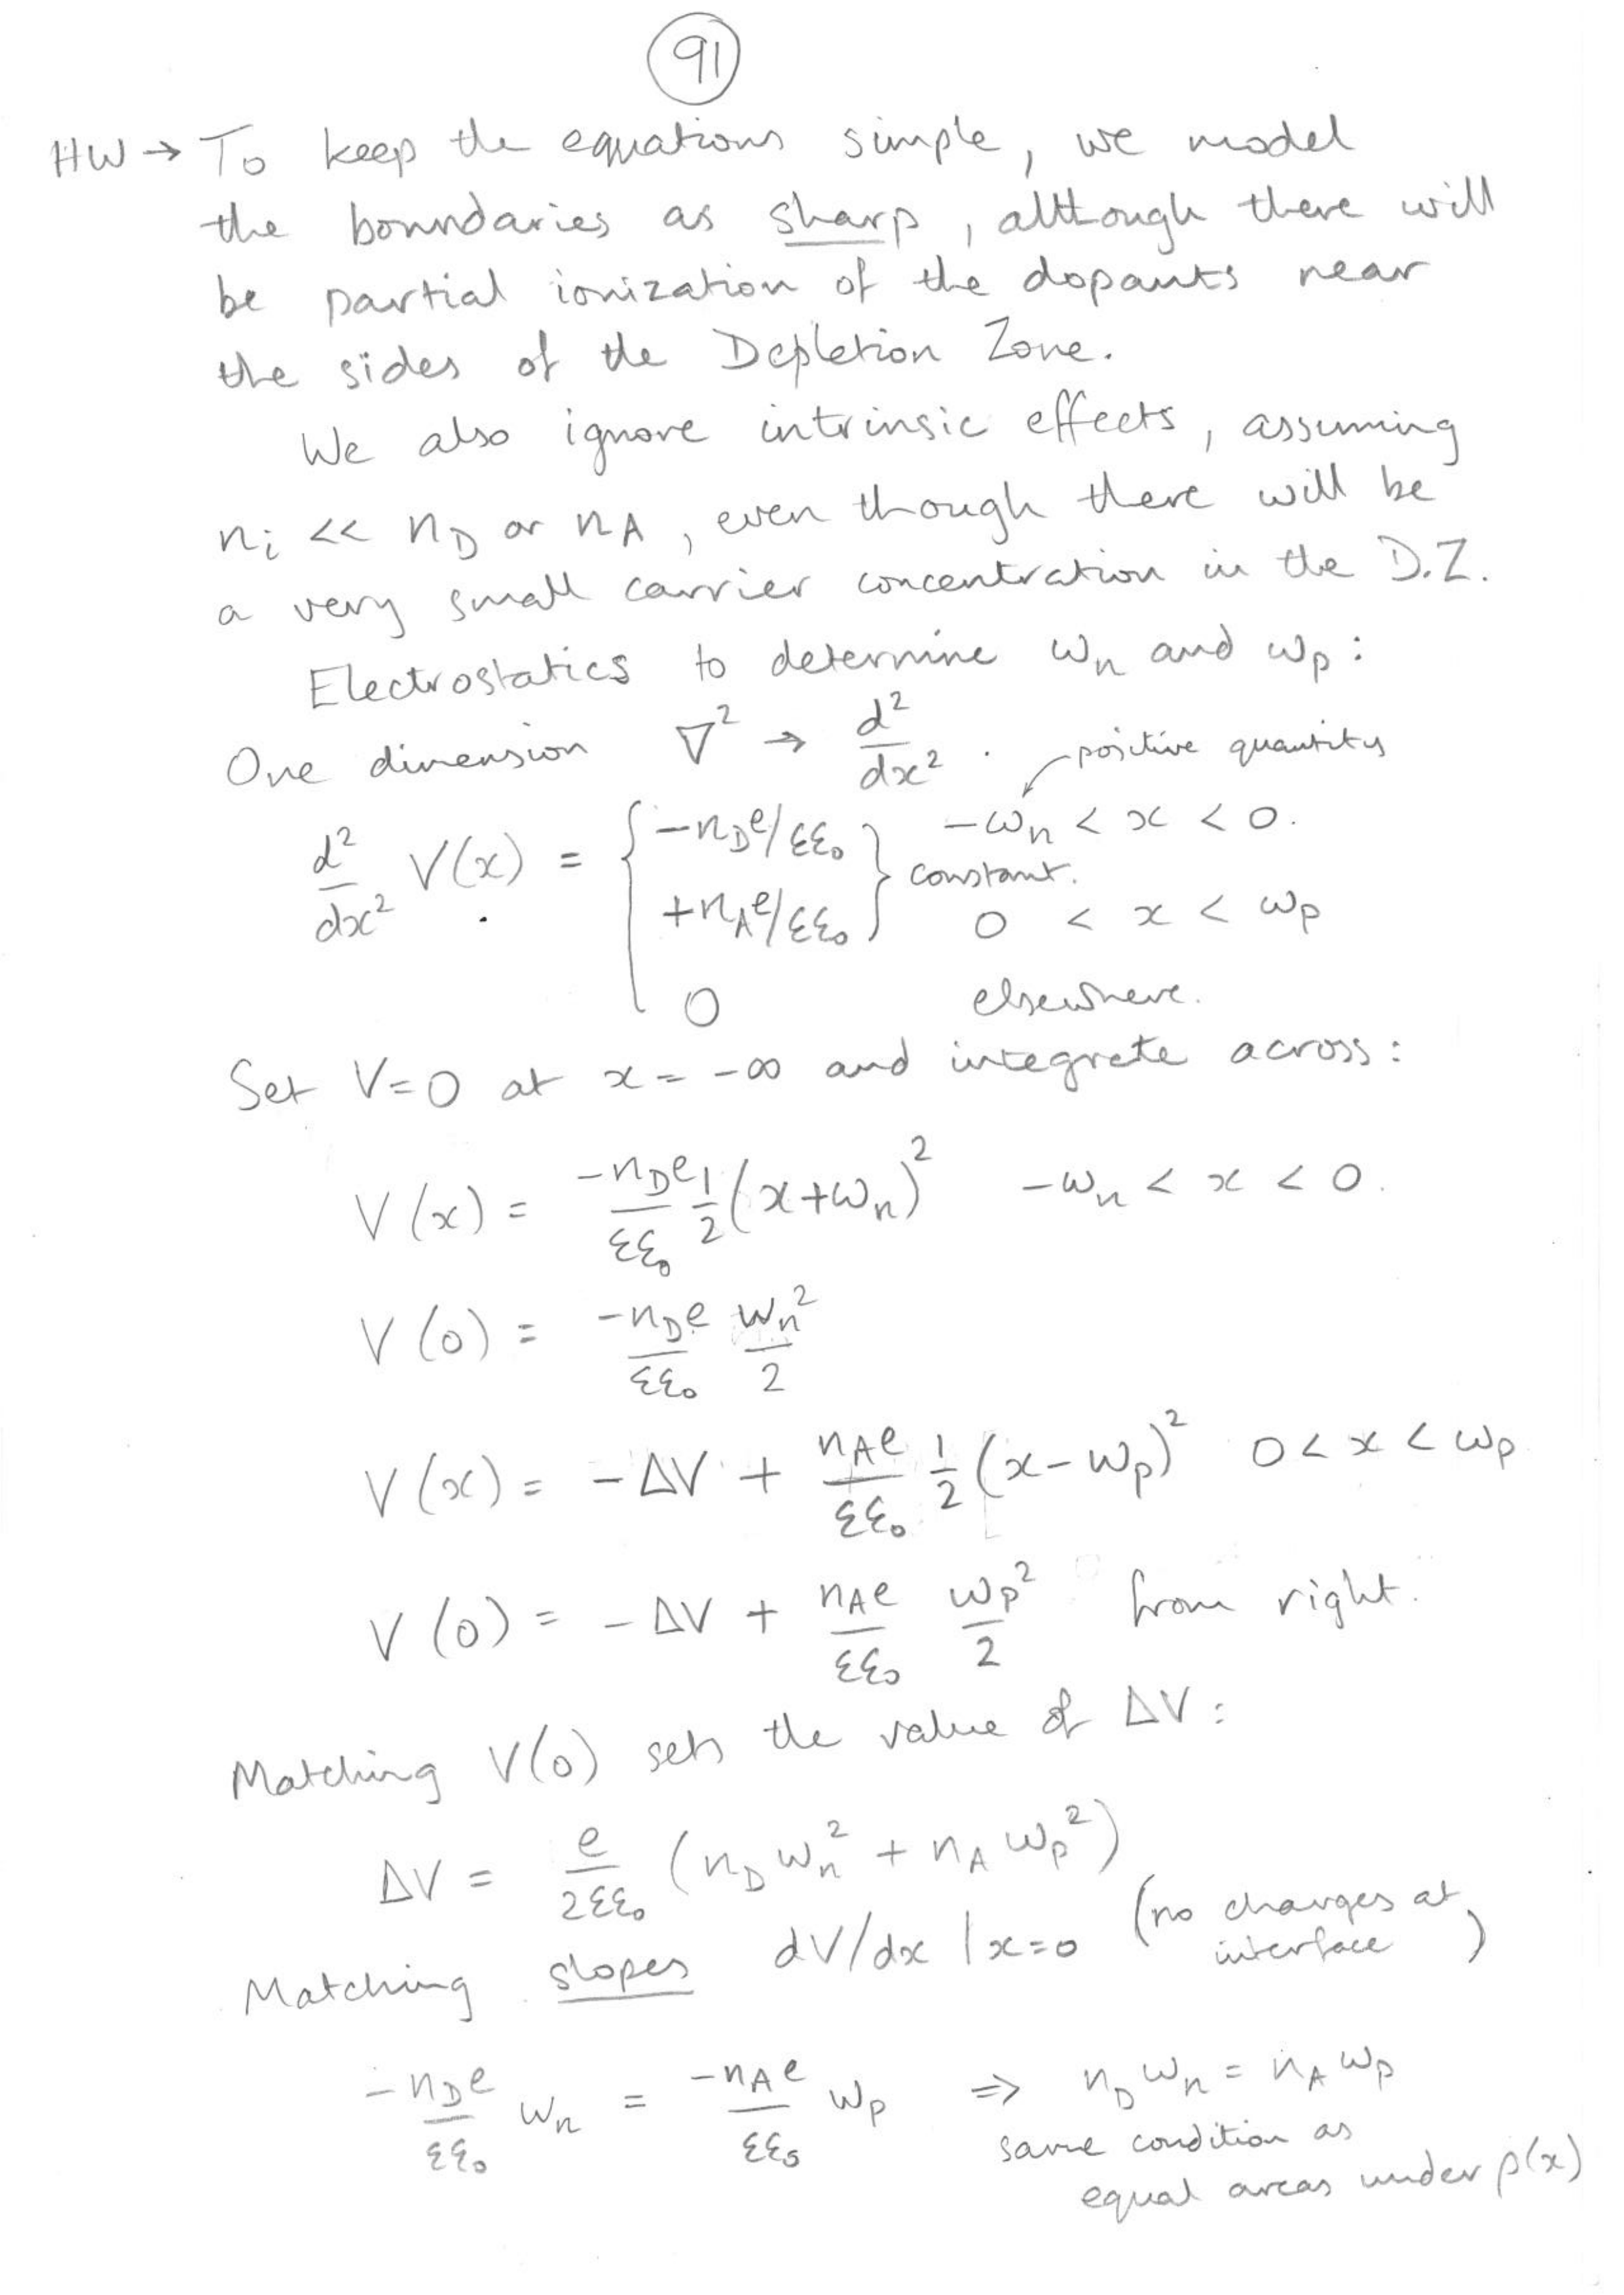 91
HW → To keep the equations simple, we model
the boundaries as sharp, although there will
be partial ionization of the dopants near
the sides of the Depletion Zone.
We also ignore intrinsic effects, assuming
nᵢ << n_D or n_A, even though there will be
a very small carrier concentration in the D.Z.
Electrostatics to determine ωₙ and ωₚ:
One dimension ∇² → d²/dx² . ← positive quantity
d²/dx² V(x) = { −n_D e/εε₀ } −ωₙ < x < 0.
constant.
+n_A e/εε₀ 0 < x < ωₚ
0 elsewhere.
Set V=0 at x = −∞ and integrate across:
V(x) = −n_D e/εε₀ 1/2 (x+ωₙ)² −ωₙ < x < 0.
V(0) = −n_D e/εε₀ ωₙ²/2
V(x) = −ΔV + n_A e/εε₀ 1/2 (x−ωₚ)² 0 < x < ωₚ
V(0) = −ΔV + n_A e/εε₀ ωₚ²/2 from right.
Matching V(0) sets the value of ΔV:
ΔV = e/2εε₀ (n_D ωₙ² + n_A ωₚ²)
Matching slopes dV/dx |x=0 (no charges at
interface)
−n_D e/εε₀ ωₙ = −n_A e/εε₀ ωₚ ⇒ n_D ωₙ = n_A ωₚ
same condition as
equal areas under ρ(x)